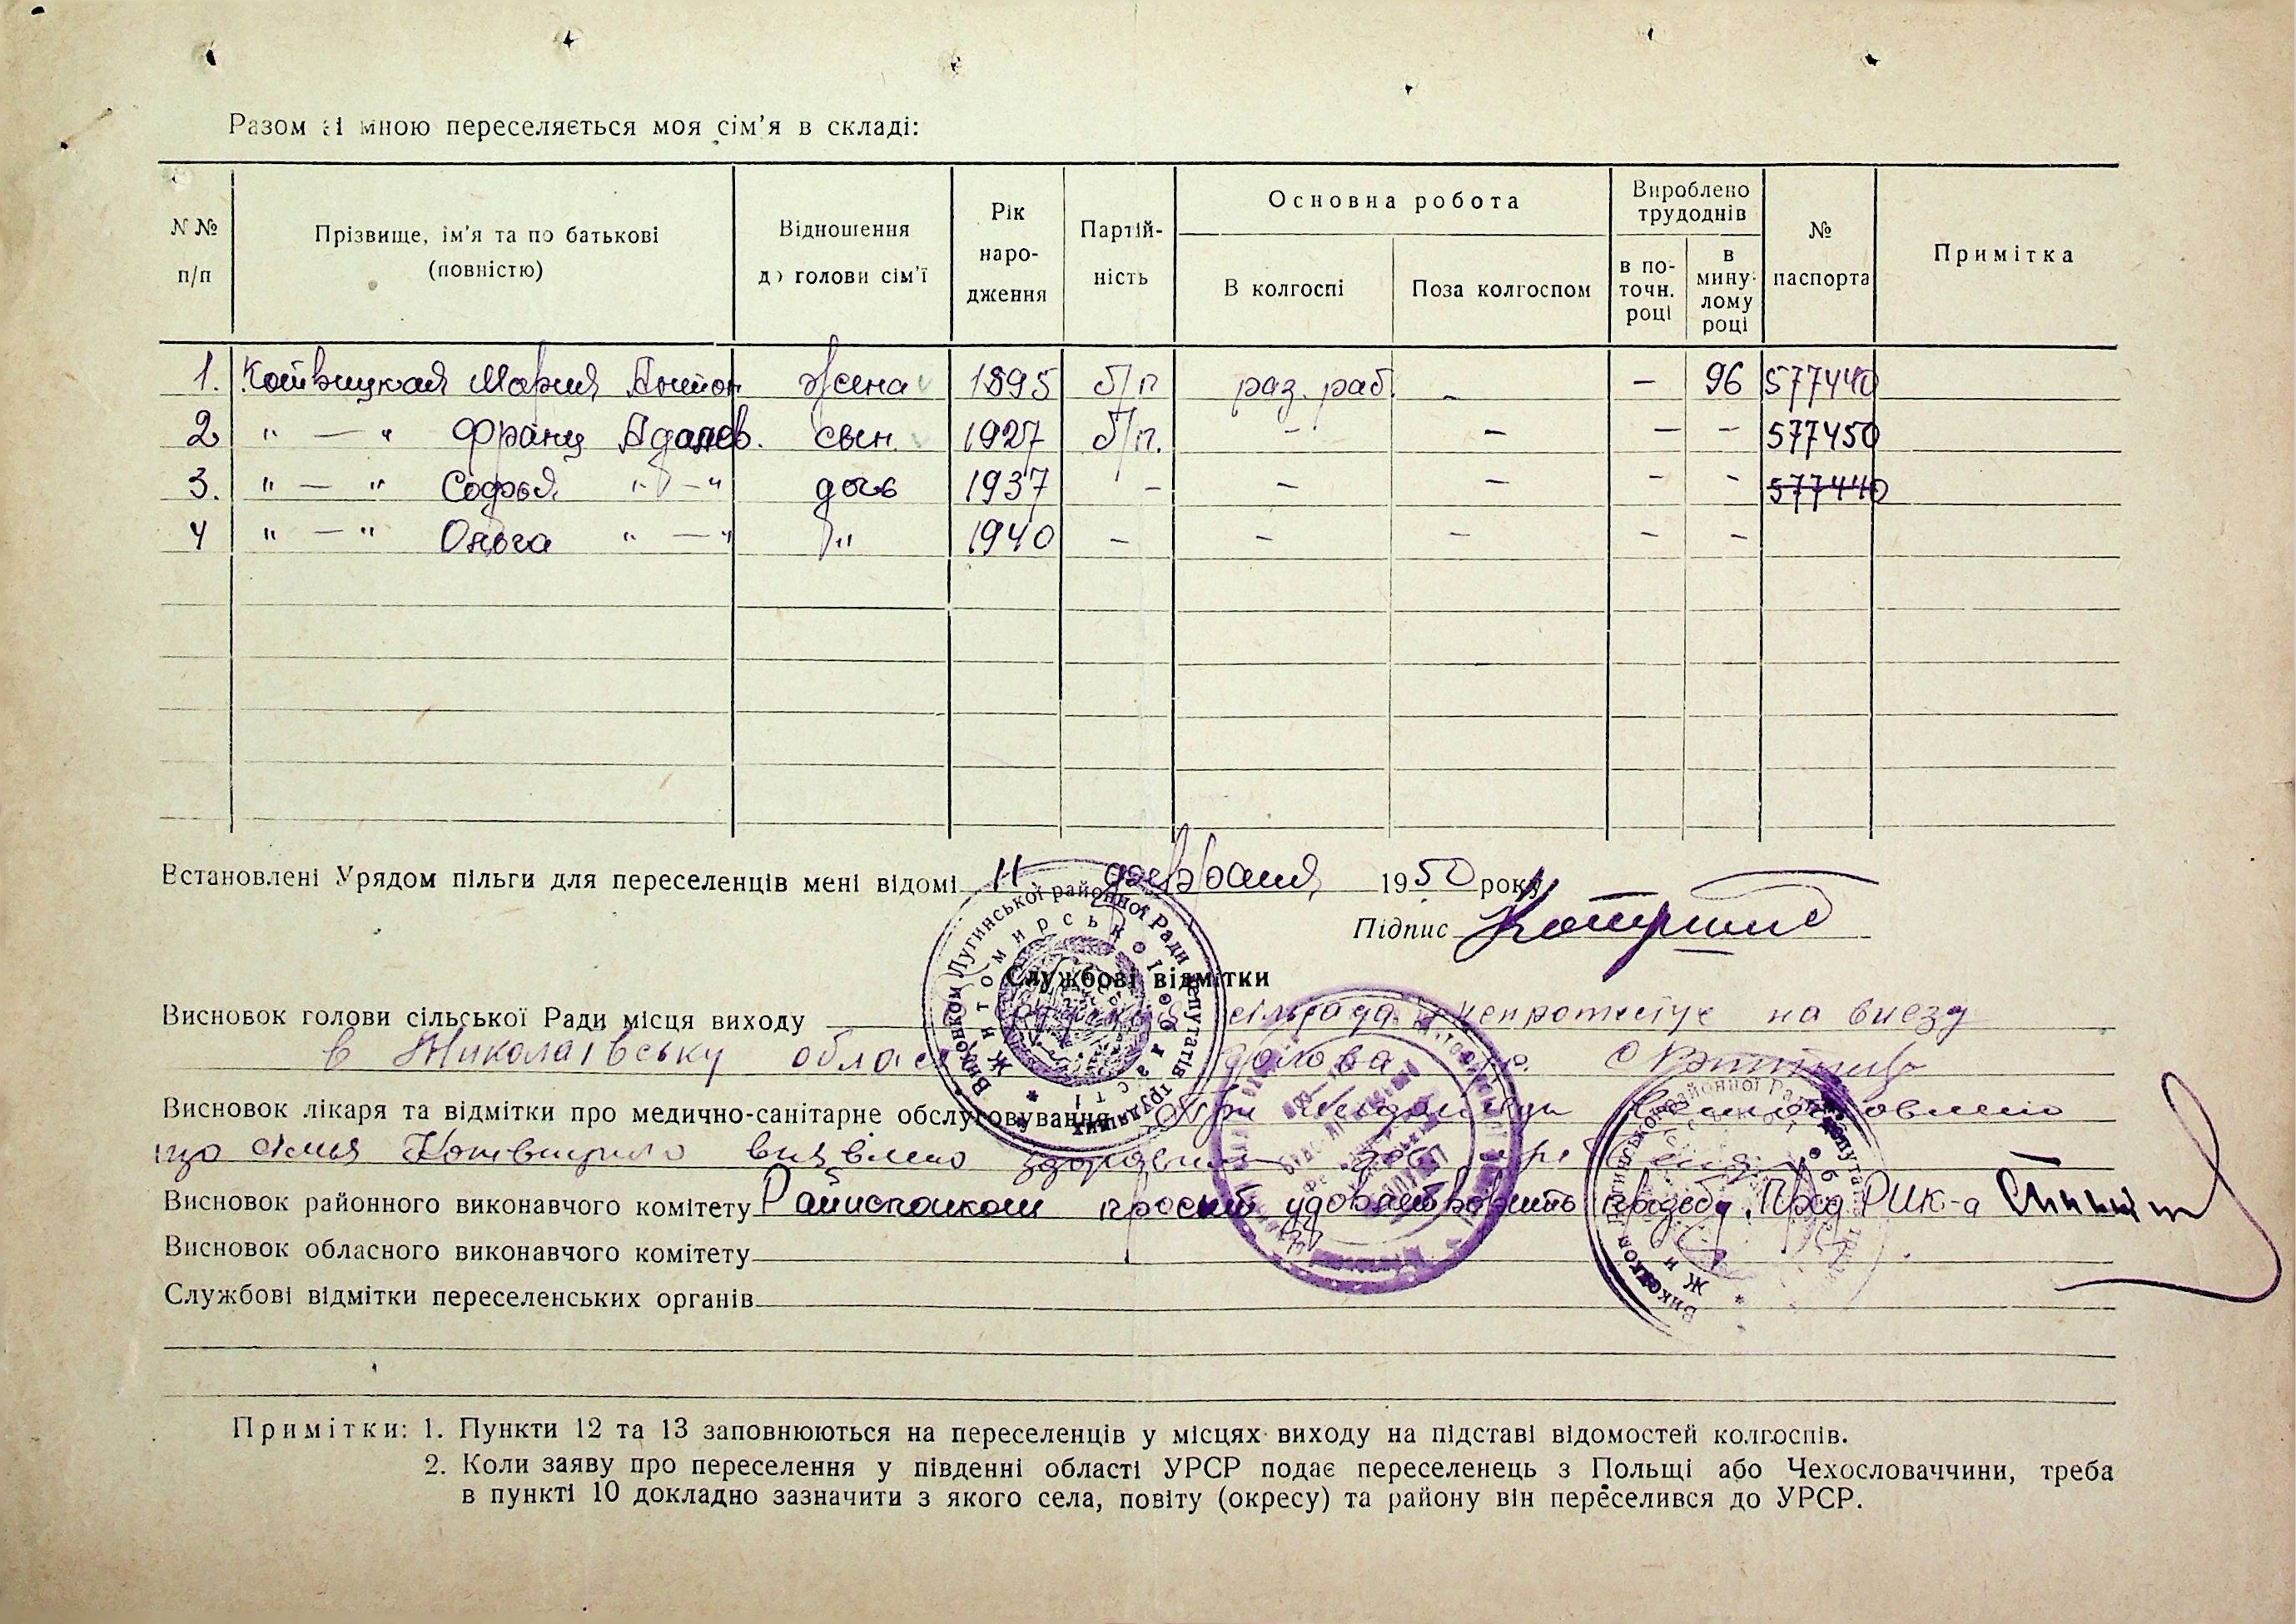 Разом зі мною переселяється моя сім'я в складі:
N№ п/п
Прізвище, ім'я та по батькові (повністю)
Відношення до голови сім'ї
Рік народження
Партійність
Основна робота
В колгоспі
Поза колгоспом
Вироблено трудоднів
в поточн. році
в минулому році
№ паспорта
Примітка
1. Котвицкая Мария Антон жена 1895 б/п раз. раб. - - 96 577440
2 " — " Франц Адамов. сын. 1927 б/п. - - - - 577450
3. " — " Софья " — " дочь 1937 - - - - - 577440
4 " — " Ольга " — " " 1940 - - - - -
Встановлені Урядом пільги для переселенців мені відомі 11 февраля 1950 року
Підпис
Службові відмітки
Висновок голови сільської Ради місця виходу сільрада непротестує на виезд
в Миколаівську област Голова
Висновок лікаря та відмітки про медично-санітарне обслуговування При встановлено
що сімья виявлено
Висновок районного виконавчого комітету Райисполком просит удовлетворить прозьбу. Пред РИК-а
Висновок обласного виконавчого комітету
Службові відмітки переселенських органів
Виконком Лугинської районної Ради депутатів трудящих
Житомирської області
Примітки: 1. Пункти 12 та 13 заповнюються на переселенців у місцях виходу на підставі відомостей колгоспів.
2. Коли заяву про переселення у південні області УРСР подає переселенець з Польщі або Чехословаччини, треба
в пункті 10 докладно зазначити з якого села, повіту (окресу) та району він переселився до УРСР.